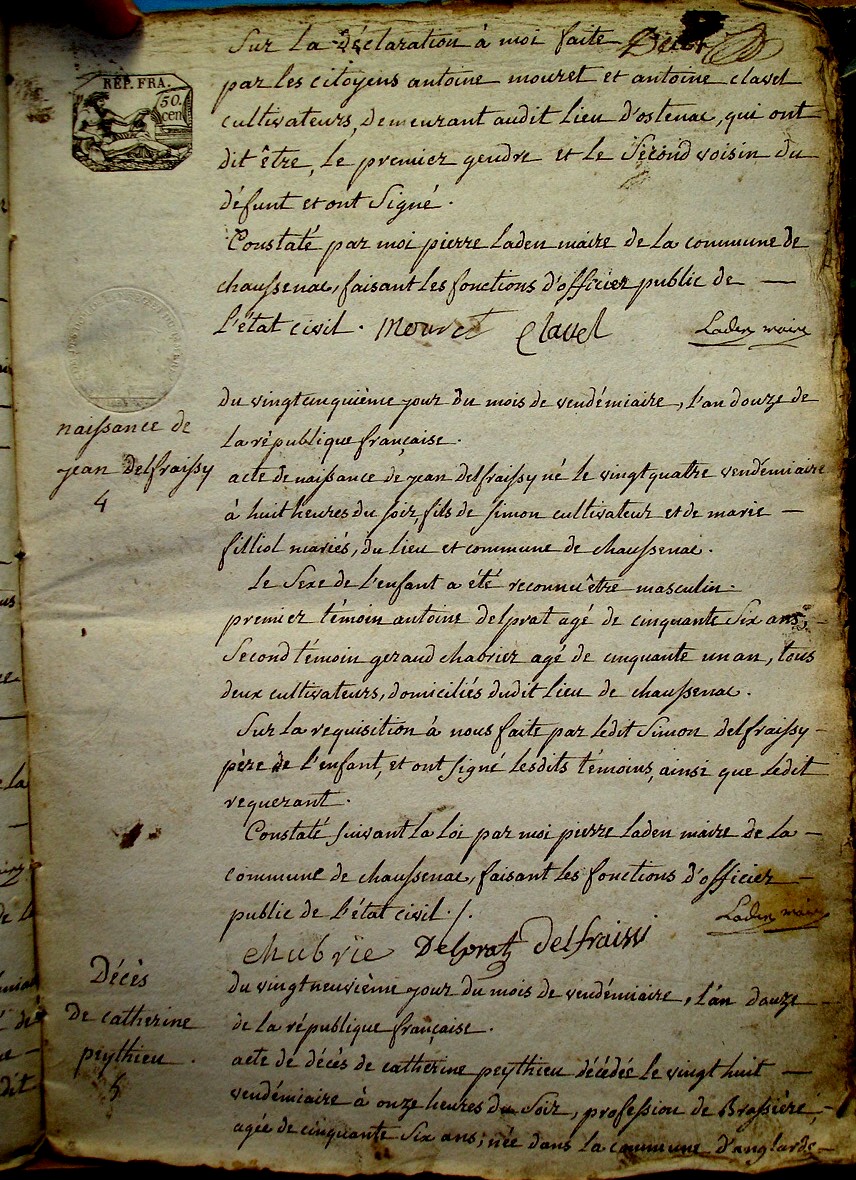 Sur la déclaration à moi faite
par les citoyens antoine mouret et antoine clavel
cultivateurs, demeurant audit lieu d'ostenac, qui ont
dit être, le premier gendre et le second voisin du
défunt et ont signé.
Constaté par moi pierre Laden maire de la commune de
chaussenac, faisant les fonctions d'officier public de —
l'état civil. Mouret Clavel Laden maire
RÉP. FRA.
50.
cen
naissance de
jean delfraissy
4
du vingt cinquième jour du mois de vendémiaire, l'an douze de
la république française.
acte de naissance de jean delfraissy né le vingt quatre vendémiaire
à huit heures du soir, fils de simon cultivateur et de marie —
filliol mariés, du lieu et commune de chaussenac.
le sexe de l'enfant a été reconnu être masculin.
premier témoin antoine delprat agé de cinquante six ans,
second témoin geraud chabrier agé de cinquante un an, tous
deux cultivateurs, domiciliés dudit lieu de chaussenac.
Sur la requisition à nous faite par ledit Simon delfraissy -
père de l'enfant, et ont signé lesdits témoins, ainsi que ledit
requerant.
Constaté suivant la loi par moi pierre laden maire de la —
commune de chaussenac, faisant les fonctions d'officier —
public de l'état civil ./. Laden maire
chabrie Delprat delfraissi
Décès
de catherine
peythieu.
5
du vingt neuvième jour du mois de vendémiaire, l'an douze —
de la république française.
acte de décès de catherine peythieu décédée le vingt huit —
vendémiaire à onze heures du soir, profession de Brassière, -
agée de cinquante six ans, née dans la commune d'anglards —